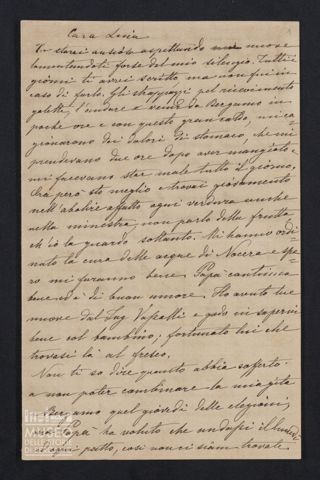 Cara Luisa
Tu starai ansiosa aspettando mie nuove
lamentandoti forse del mio silenzio. Tutti i
giorni ti avrei scritto ma non fui in
caso di farlo. Gli strapazzi pel ricevimento
galette, l'andare e venire da Bergamo in
poche ore e con questo gran caldo, mi ca-
gionarono dei dolori di stomaco, che mi
prendevano due ore dopo aver mangiato e
mi facevano star male tutto il giorno.
Ora però sto meglio e trovai giovamento
nell'abolire affatto ogni verdura anche
nella minestra, non parlo della frutta
ch'io la guardo soltanto. Mi hanno ordi-
nato la cura delle acque di Nocera e spe-
ro mi faranno bene. Papà continua
bene ed è di buon umore. Ho avuto tue
nuove dal Ing. e godo in sapervi
bene col bambino; fortunato lui che
trovasi là al fresco.
Non ti so dire quanto abbia sofferto
a non poter combinare la mia gita
Bergamo quel giovedì delle elezioni,
Papà ha voluto che andassi il lunedì
ad ogni patto, così non ci siam trovate
MUSEO
DELLE STORIE